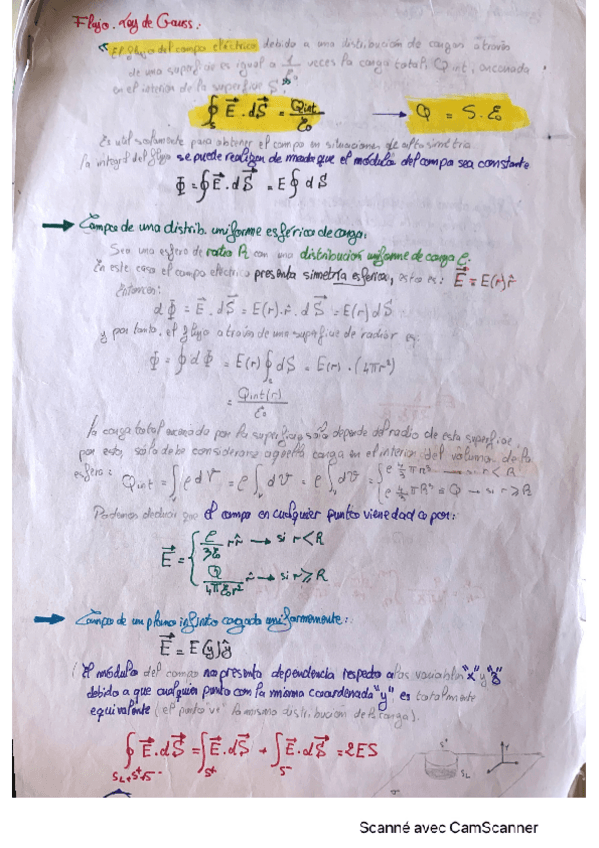 Flujo. Ley de Gauss:
"El flujo del campo eléctrico debido a una distribución de cargas a través
de una superficie es igual a 1/ε₀ veces la carga total, Q int, encerrada
en el interior de la superficie S."
∮ₛ E⃗ . dS⃗ = Qint/ε₀ → Q = S . ε₀
Es util solamente para obtener el campo en situaciones de alta simetría.
la integral del flujo se puede realizar de modo que el módulo del campo sea constante
Φ = ∮ E⃗ . dS⃗ = E ∮ dS
→ Campo de una distrib. uniforme esférica de carga:
Sea una esfera de radio R con una distribución uniforme de carga ρ.
En este caso el campo eléctrico presenta simetría esférica, esto es: E⃗ = E(r) r̂
Entonces:
dΦ = E⃗ . dS⃗ = E(r) . r̂ . dS⃗ = E(r) dS
y por tanto, el flujo a través de una superficie de radio r es:
Φ = ∮ dΦ = E(r) ∮ₛ dS = E(r) . (4πr²)
= Qint(r)/ε₀
la carga total encerrada por la superficie sólo depende del radio de esta superficie,
por esto, sólo debe considerarse aquella carga en el interior del volumen de la
esfera: Qint = ∫ᵥ ρ dV = ρ ∫ᵥ dV = ρ ∫ᵥ dV = { ρ 4/3 π r³ → si r < R
ρ 4/3 π R³ = Q → si r ≥ R
Podemos deducir que el campo en cualquier punto viene dado por:
E⃗ = { ρ/3ε₀ r r̂ → si r < R
Q/4πε₀r² r̂ → si r ≥ R
→ Campo de un plano infinito cargado uniformemente:
E⃗ = E(y) ŷ
El módulo del campo no presenta dependencia respecto a las variables "x" y "z"
debido a que cualquier punto con la misma coordenada "y" es totalmente
equivalente (el punto "ve" la misma distribución de la carga).
∮ E⃗ . dS⃗ = ∫ E⃗ . dS⃗ + ∫ E⃗ . dS⃗ = 2ES
S_L + S⁺ + S⁻ S⁺ S⁻
S⁺
S_L
Scanné avec CamScanner